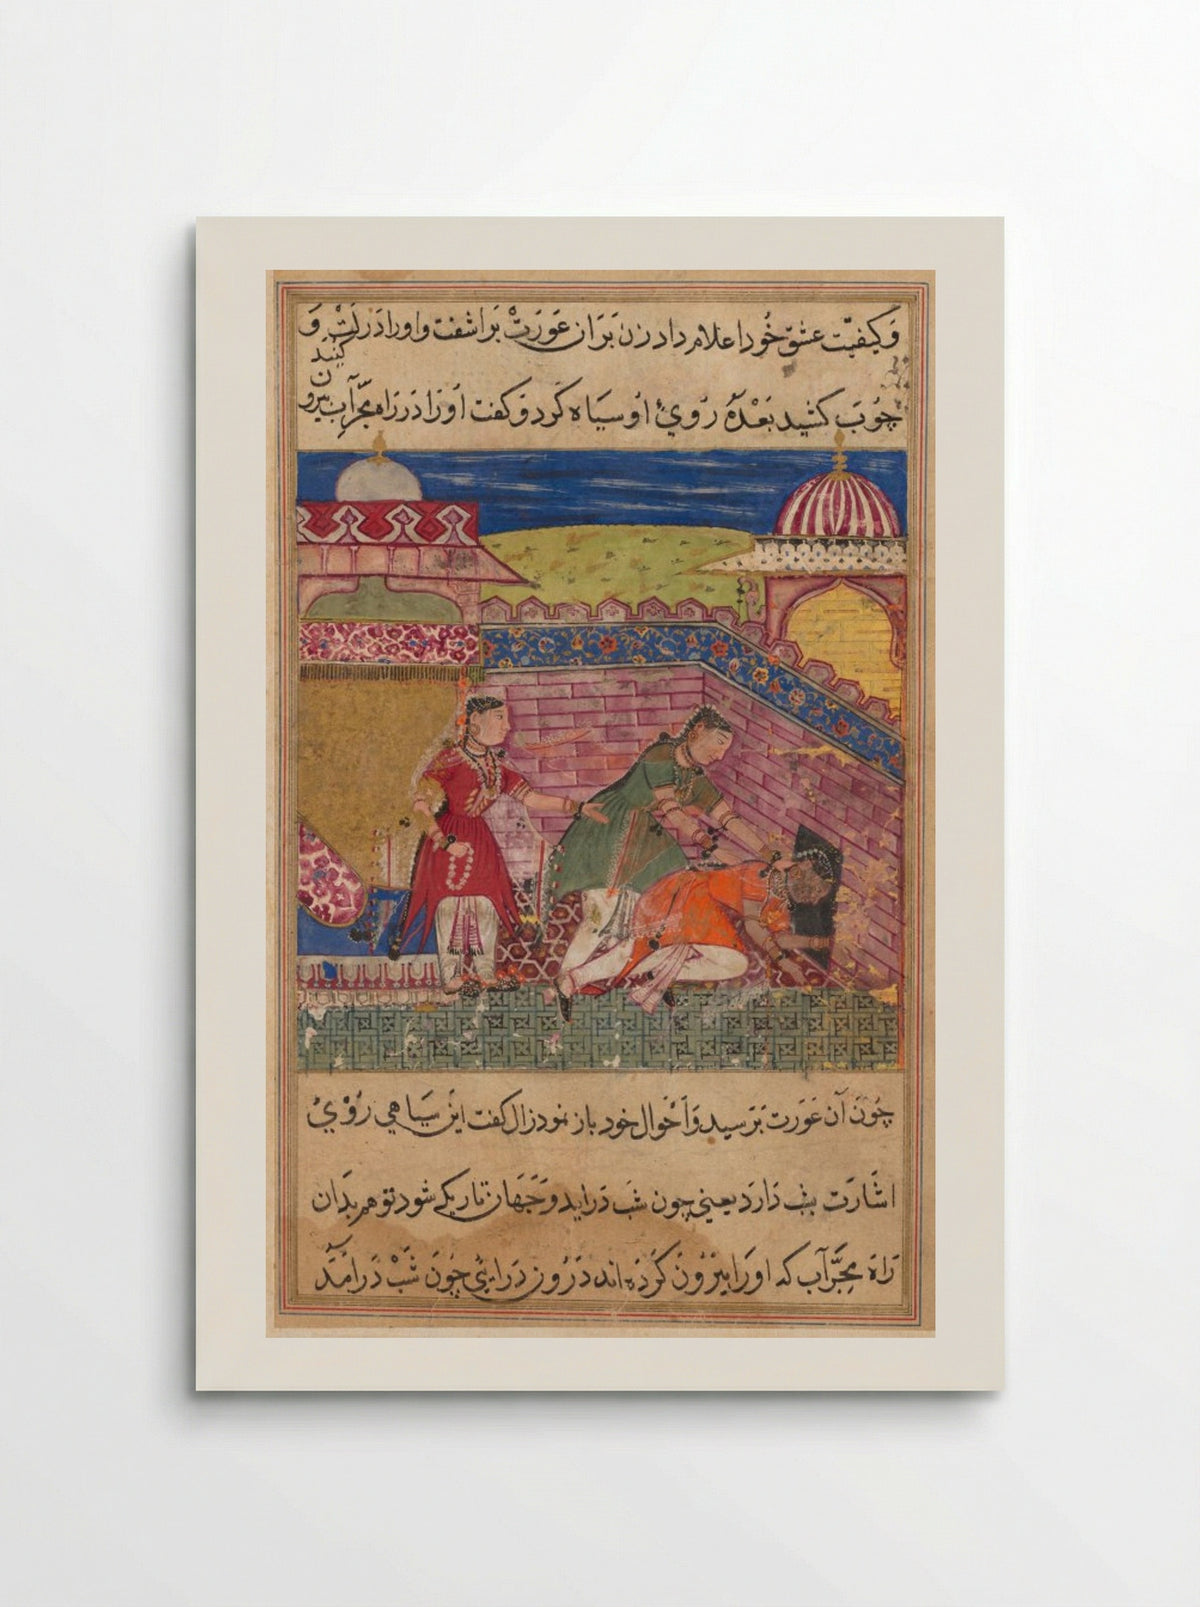 وَکَیفیّت عشقِ خُود اعلام داد زن بَرَان عَورَتْ بَراشفت و اورا دَرلَتْ وَ
چُوبَ کشید بَعْدَهُ رُویِ اُو سیاه کَرد وَ کفت اُورَا دَر رَاه مجرّآب بیرُون کُنَند
چُونَ آن عَورَت بَرَسید وَاَحْوال خود باز نمود زال کفت این سیاهي رُوْيْ
اشَارَت بشب دَارَد یعنی چون شَب دَراید وَ جَهَان تاریک شود تو هم بدَان
رَاه مجرّآب که اورا بیرُونَ کَردَه اند دَرُون دَرایٔي چُونَ شَبْ دَر آمَدْ